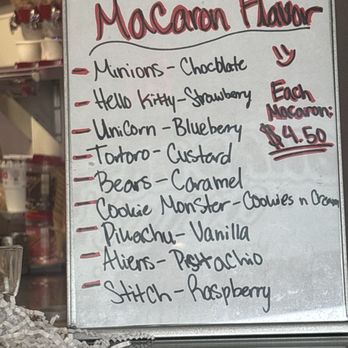 Macaron Flavor
- Minions - Chocolate
- Hello Kitty - Strawberry
- Unicorn - Blueberry
- Totoro - Custard
- Bears - Caramel
- Cookie Monster - Cookies n Cream
- Pikachu - Vanilla
- Aliens - Pistachio
- Stitch - Raspberry
Each
Macaron:
$4.50